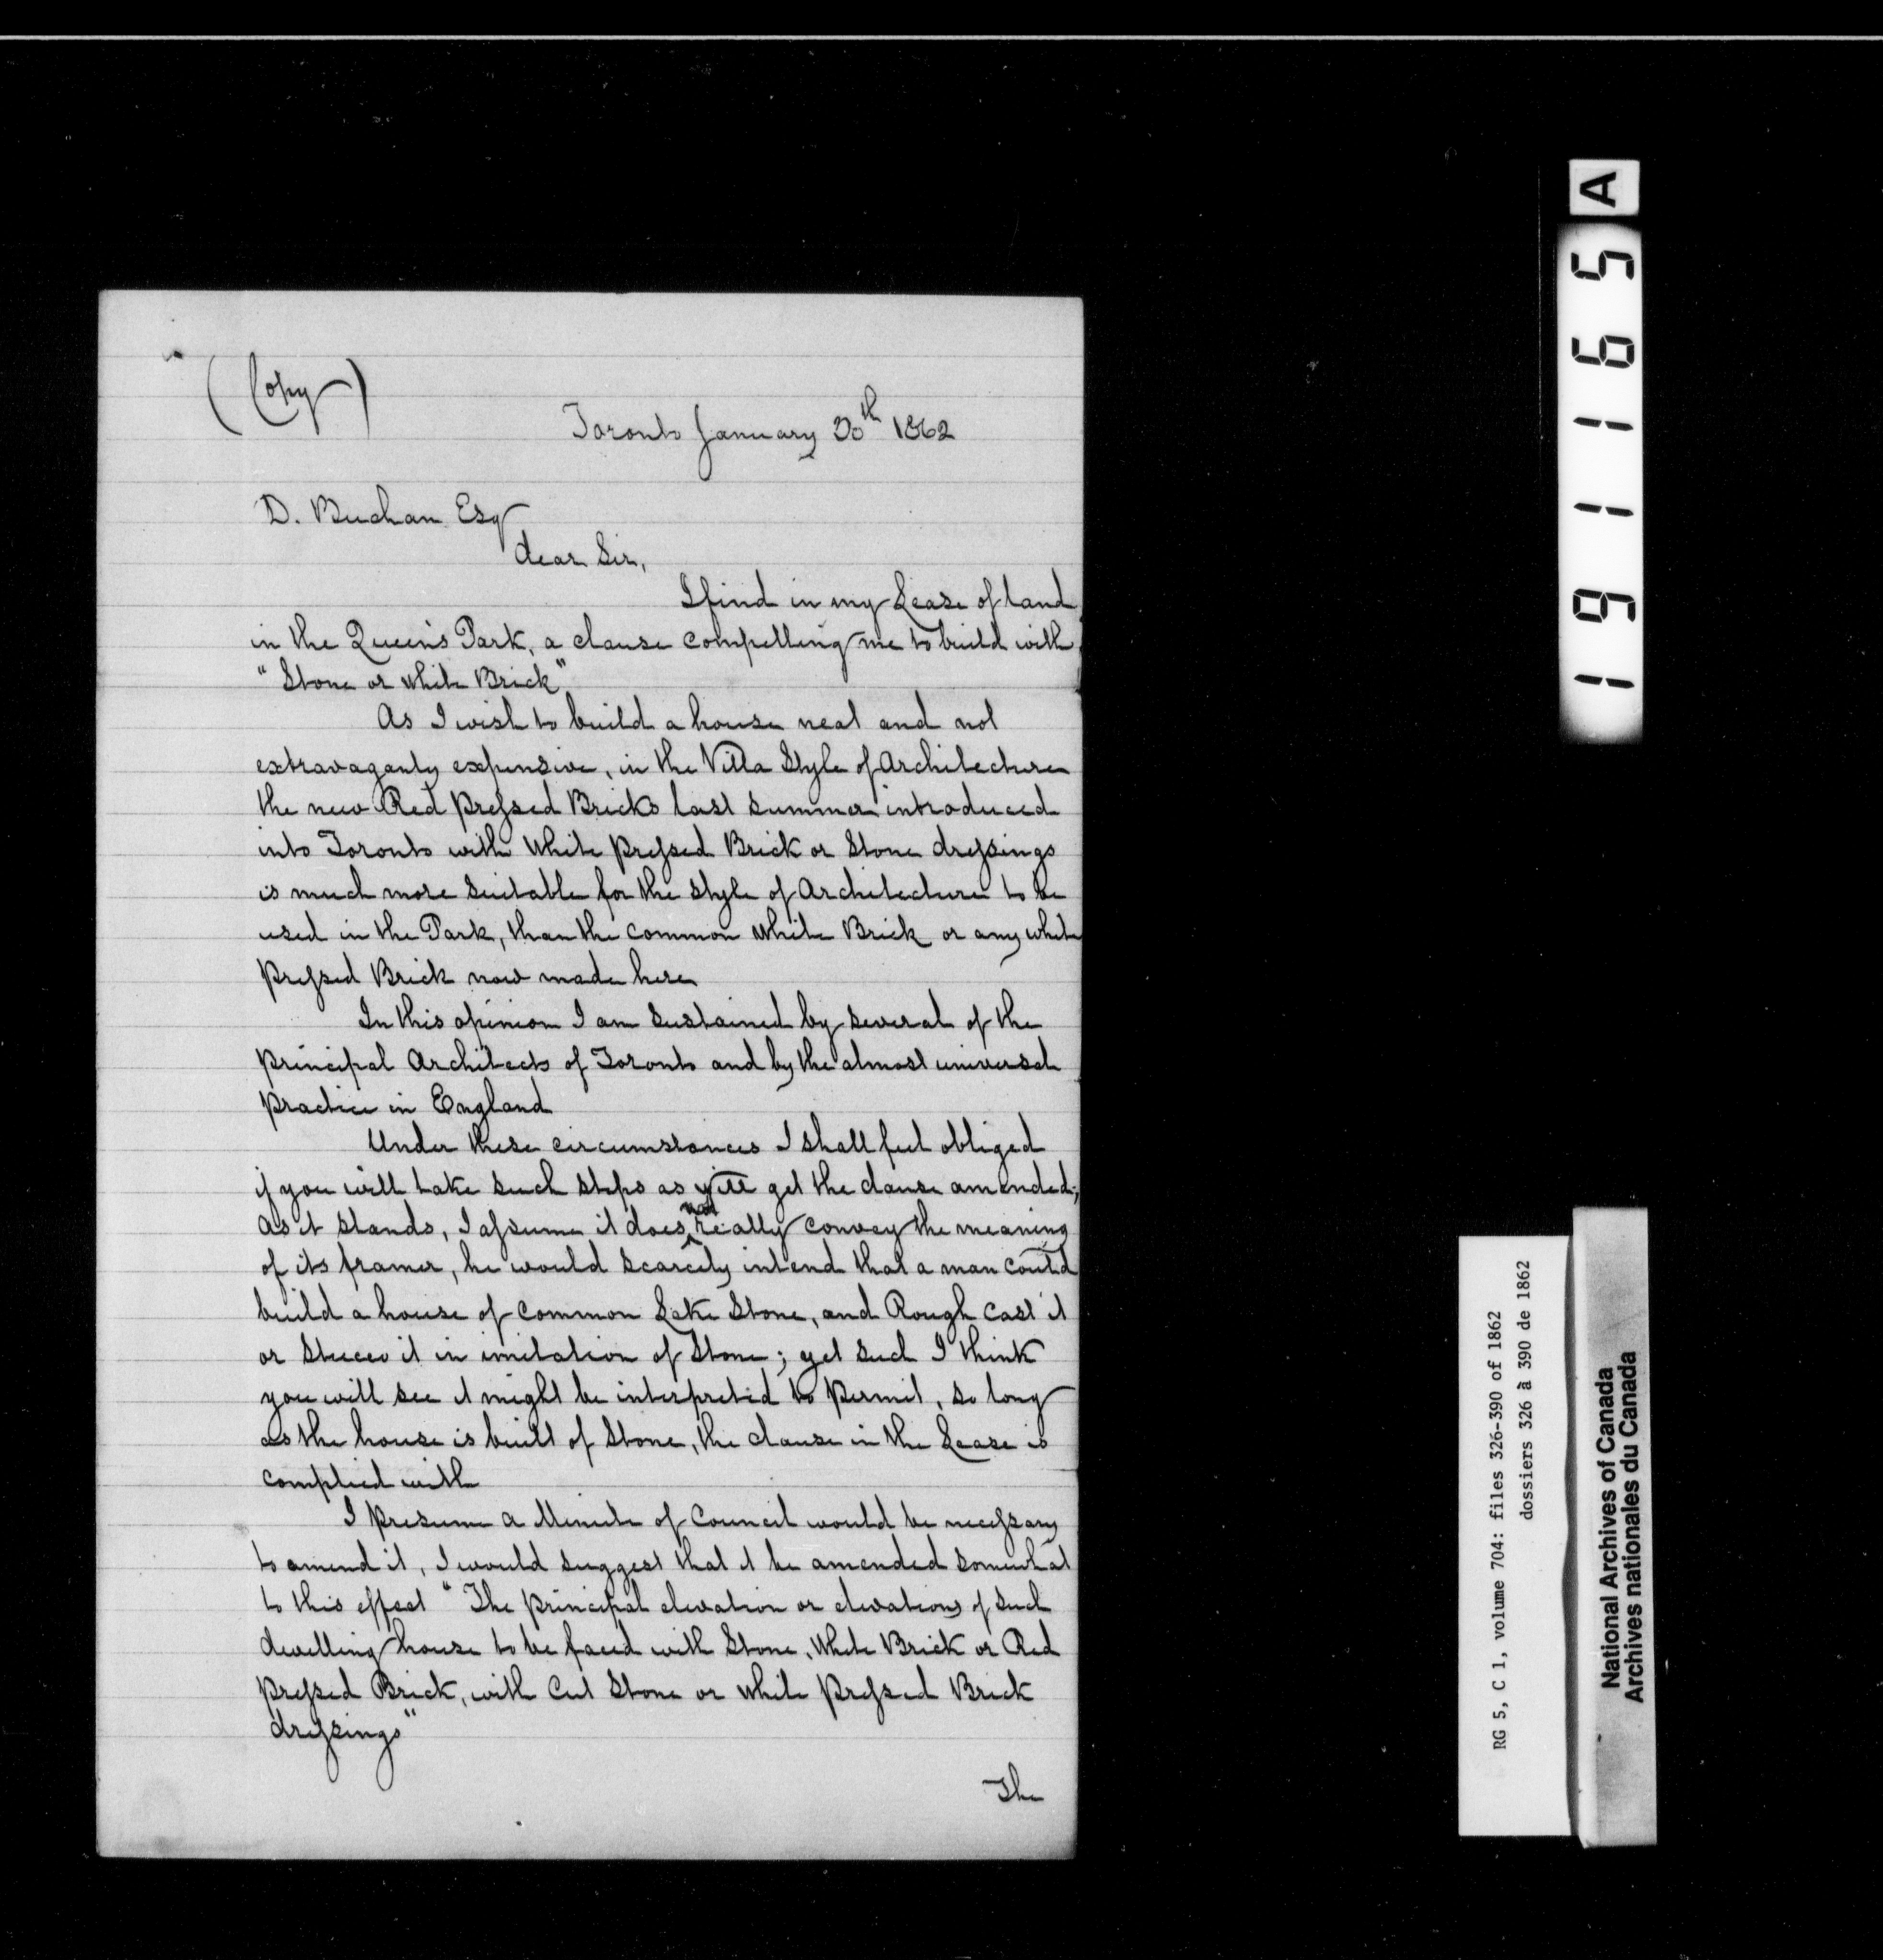 (Copy)
Toronto January 30th 1862
D. Buchan Esq
dear Sir,
I find in my Lease of land
in the Queen's Park, a clause compelling me to build with
"Stone or white Brick"
As I wish to build a house neat and not
extravagantly expensive, in the Villa Style of Architecture
the new Red pressed Bricks last summer introduced
into Toronto with White pressed Brick or Stone dressings
is much more suitable for the style of Architecture to be
used in the Park, than the common white Brick or any white
pressed Brick now made here
In this opinion I am sustained by several of the
principal Architects of Toronto and by the almost universal
practice in England
Under these circumstances I shall feel obliged
if you will take such steps as will get the clause amended;
as it stands, I assume it does not really convey the meaning
of its framer, he would scarcely intend that a man could
build a house of common Lake Stone, and Rough cast it
or Stucco it in imitation of Stone; yet such I think
you will see it might be interpreted to permit, so long
as the house is built of Stone, the clause in the Lease is
complied with
I presume a Minute of Council would be necessary
to amend it, I would suggest that it be amended somewhat
to this effect "The principal elevation or elevations of such
dwelling house to be faced with Stone, White Brick or Red
pressed Brick, with Cut Stone or white pressed Brick
dressings"
The
191165 A
RG 5, C 1, volume 704: files 326-390 of 1862
dossiers 326 à 390 de 1862
National Archives of Canada
Archives nationales du Canada